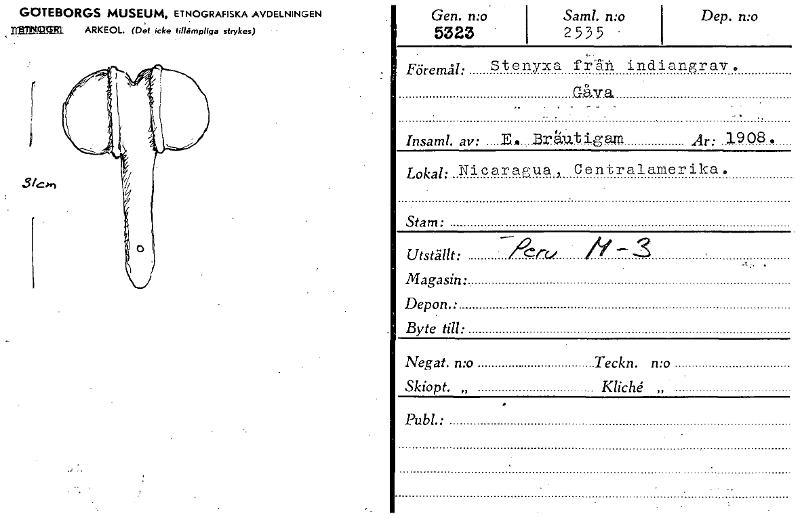 GÖTEBORGS MUSEUM, ETNOGRAFISKA AVDELNINGEN
ETNOGR. ARKEOL. (Det icke tillämpliga strykes)
31cm
Gen. n:o Saml. n:o Dep. n:o
5323 2535
Föremål: Stenyxa från indiangrav.
Gåva
Insaml. av: E. Bräutigam År: 1908.
Lokal: Nicaragua, Centralamerika.
Stam:
Utställt: Peru M-3
Magasin:
Depon.:
Byte till:
Negat. n:o Teckn. n:o
Skiopt. „ Kliché „
Publ.: